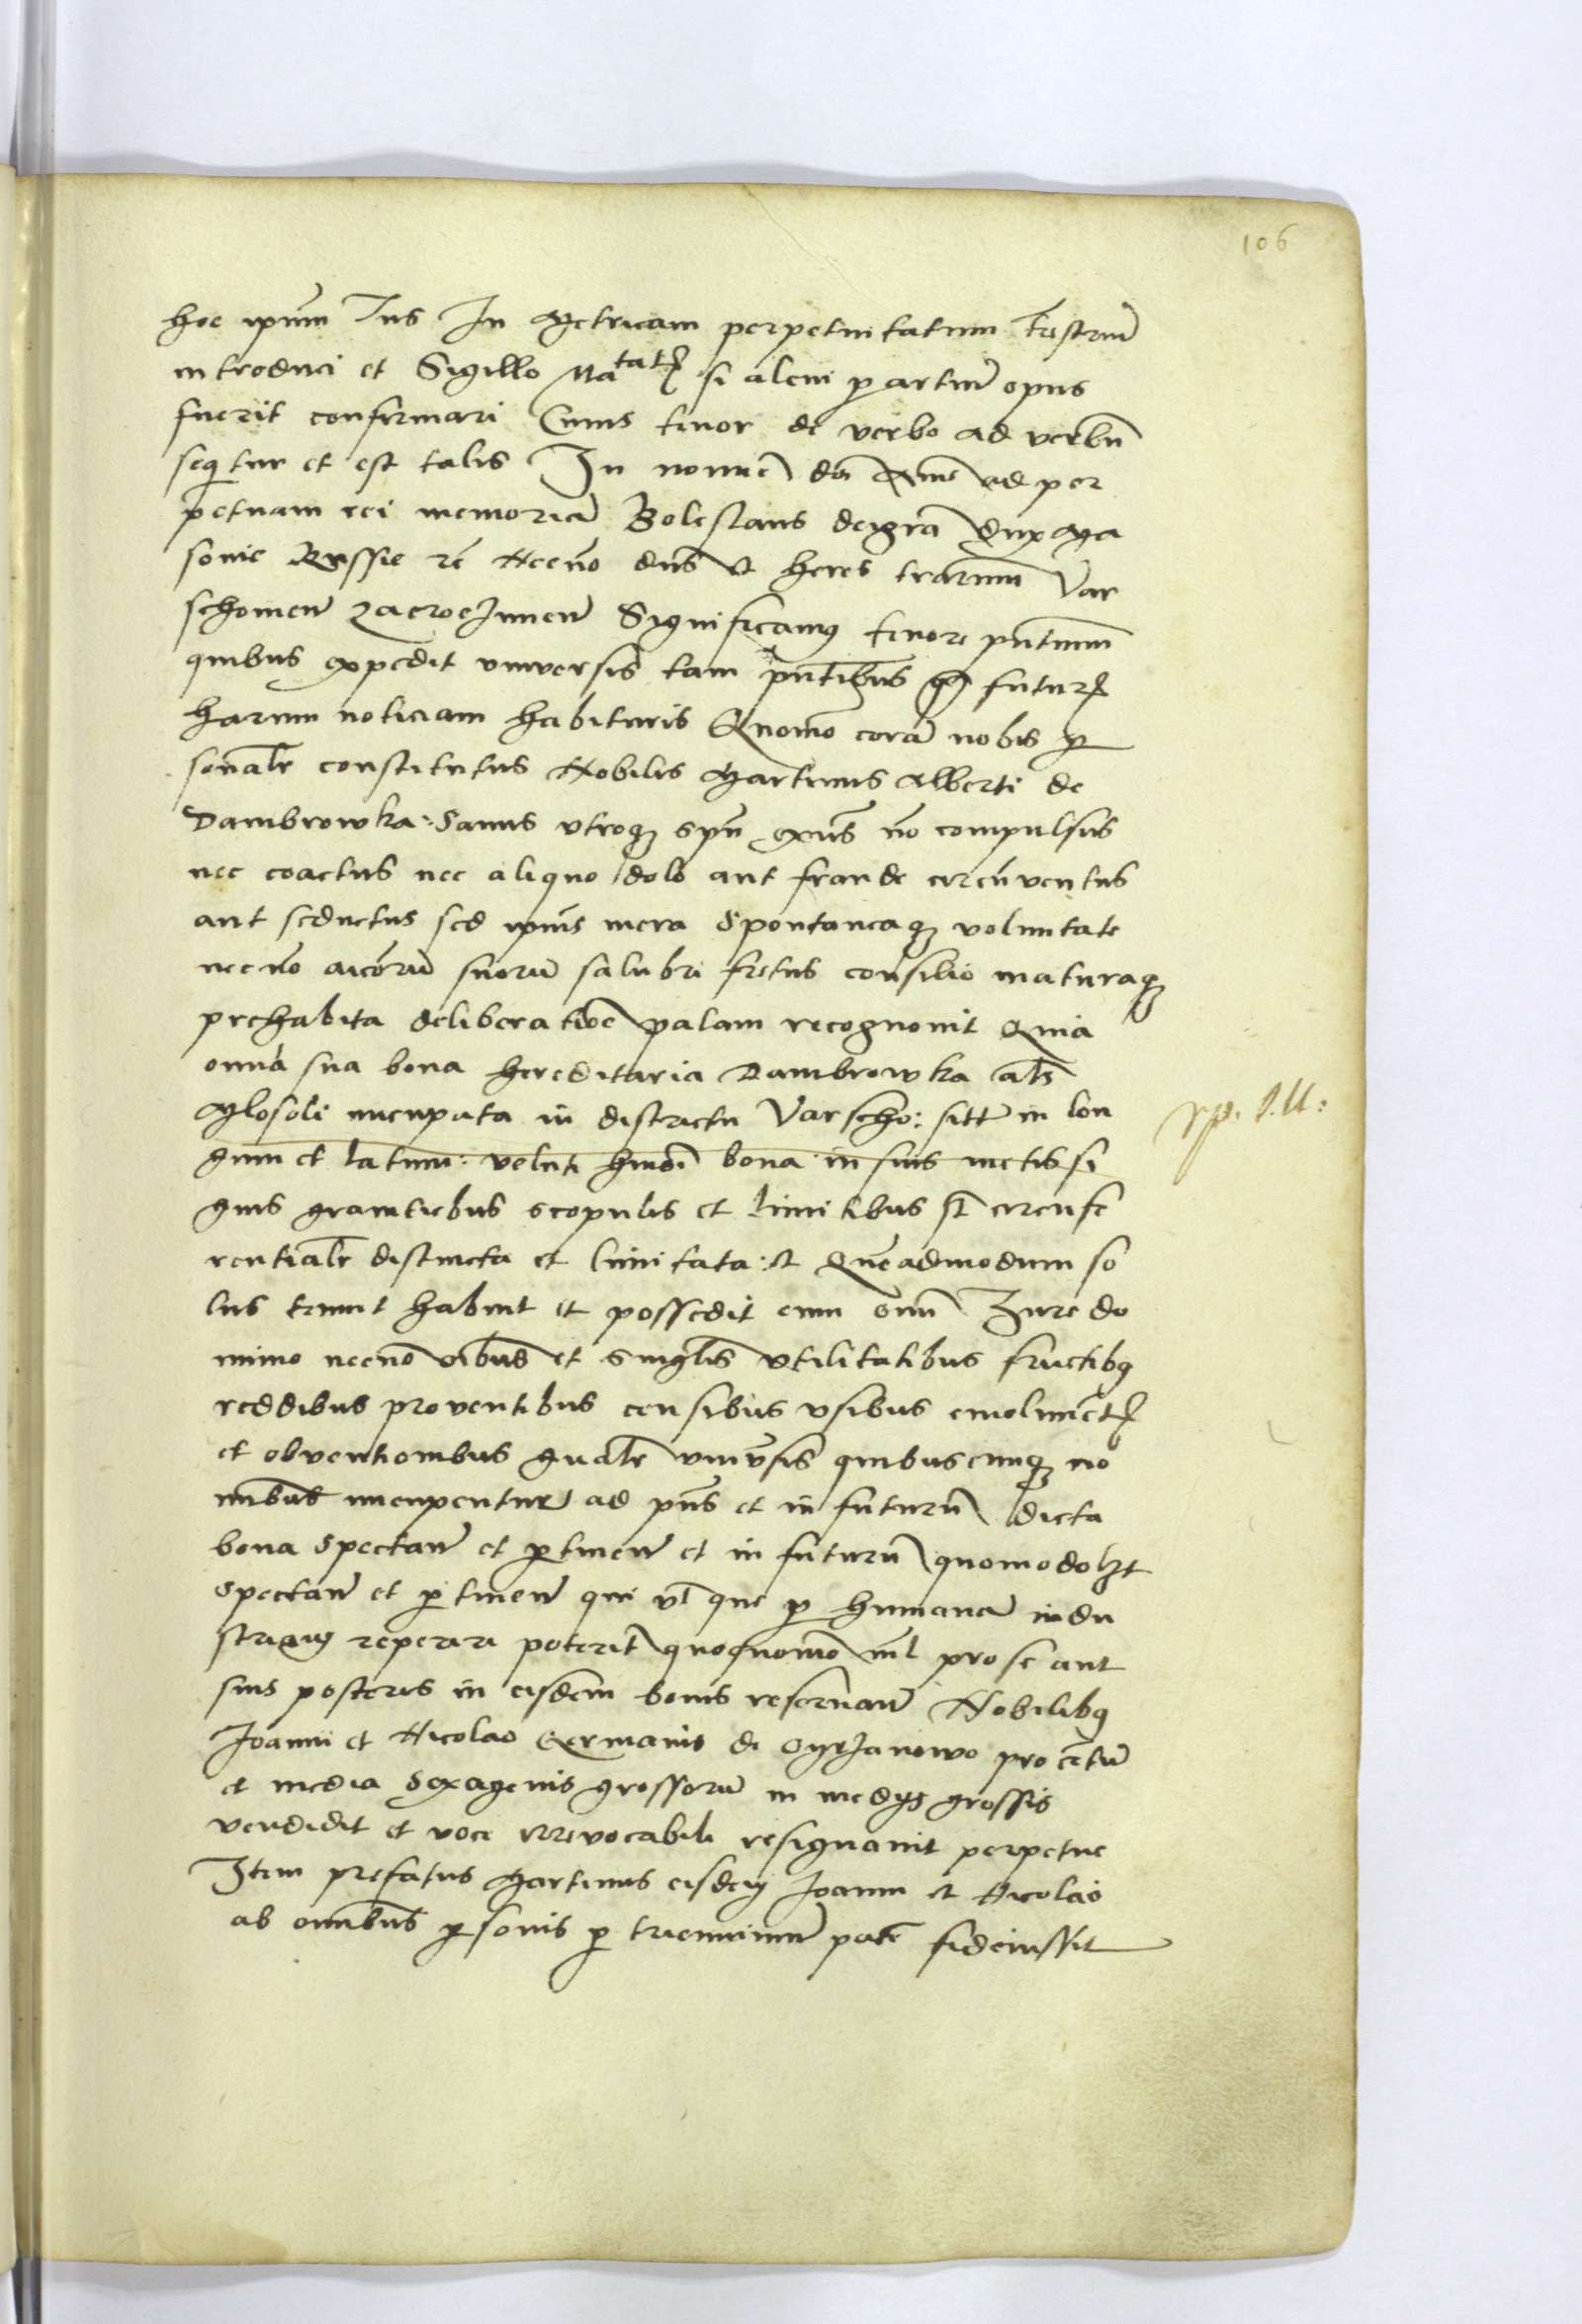 106
hoc ipsum Ius In Metricam perpetuitatum terrestrium
introduci et Sigillo Matatis si alcui partium opus
fuerit confirmari Cuius tenor de verbo ad verbum
sequitur et est talis In nomine domini Amen ad per
petuam rei memoriam Boleslaus dei gra dux Ma
sovie Russie etc Necno dns et heres trarum Var
schovien Zacroczimen Significamus tenore pntium
quibus expedit universis tam pntibus quam futuris
harum noticiam habituris Quomo coram nobis per
sonalr constitutus Nobilis Martinus Alberti de
Dambrowka: Sanus utroque existens no compulsus
nec coactus nec aliquo dolo aut fraude circuventus
aut seductus sed ipius mera Spontaneaque voluntate
necno aicorum suorum salubri fretus consilio maturaque
prehabita deliberatioe palam recognovit Quia
omnia sua bona hereditaria Dambrowka als
Mlosoli nuncupata in districtu Varscho: sitt in lon
gum et latum: veluti hmoi bona in suis metis si
gnis graniciebus scopulis et limitibus st circufe
rentialr distincta et limitata: et Quéadmodum so
lus tenuit habuit et possedit cum omni Iure do
minio necno oibus et singlis utilitatibus fructibus
redditibus proventibus censibus usibus emolumetis
et obventionibus gnalr universis quibuscunque no
minibus nuncupentur ad pns et in futurum dicta
bona Spectan et ptinen et in futurum quomodolibet
Spectan et ptinen qui vel que per humanam indu
striam reperiri poterit quoquomo nil pro se aut
suis posteris in eisdem bonis reservan Nobilibus
Joanni et Nicolao Germanis de pro centum
et media Sexagenis grossorum in medys grossis
vendidit et voce irrevocabili resignavit perpetue
Item prefatus Martinus eisdem Joanni et Nicolao
ab omnibus personis per triennium pate fideiussit